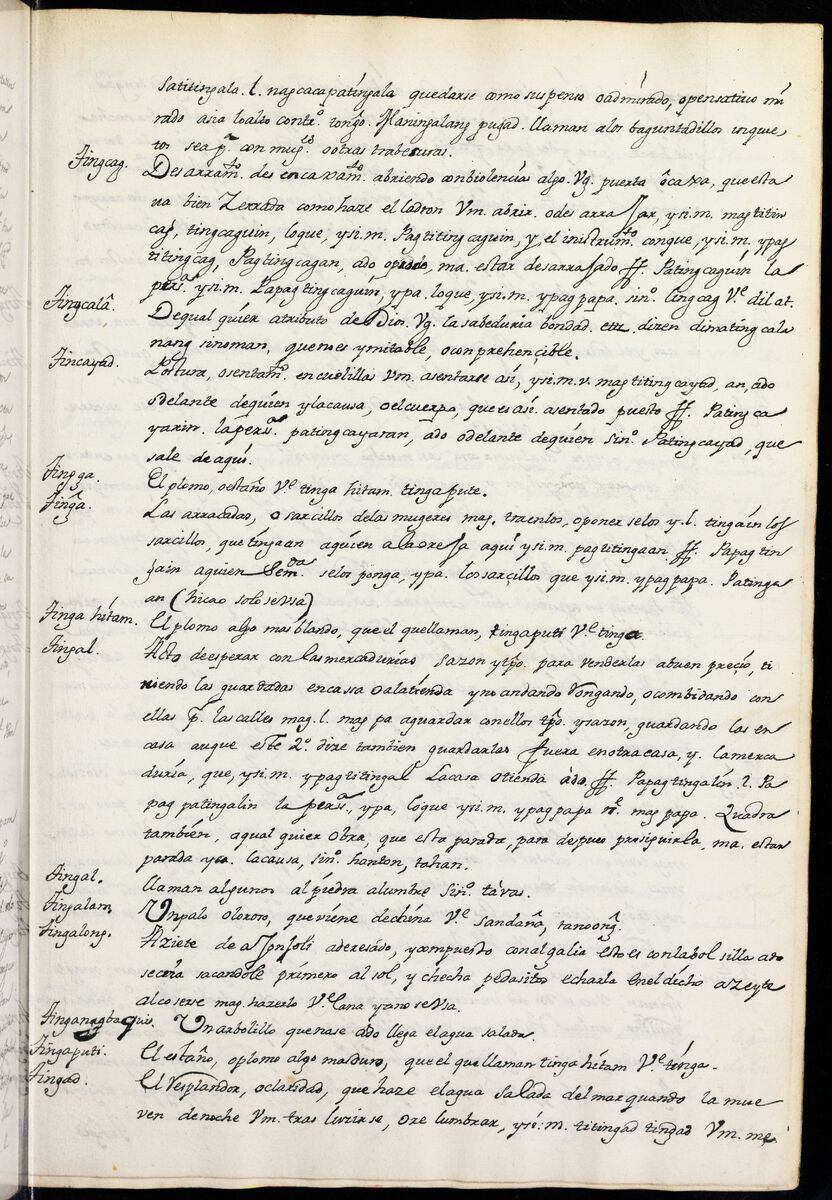 satitingala. l. nagcacapatingala quedarse como suspenso o admirado, opensativo mi
rado asia loalto contr.º tongo. Maningalang pugad. llaman alos baguntadillos inquie
tos sea p.r con mug.es o otras trabesuras.
Tingcag. Desarram.to desencaxam.to abriendo conbiolencia algo. Vg. puerta ô caxa, que esta
ua bien Zerrada como haze el ladron Vm. abrir. o desarrajar, ysi.m. magtitin
cag, tingcaguin, loque, ysi.m. Pagtitingcaguin, y, el instrum.to conque, ysi.m. ypag
titingcag, Pagtingcagan, ado opr, ma. estar desarrajado ff. Patingcaguin la
pers.ª ysi.m. Lapagtingcaguin, ypa. loque, ysi.m. ypagpapa, sin.º lingcag V.e dilat.
Tingcalâ. De qualquier atributo de Dios. Vg. la sabeduria bondad. etc. dizen dimatingcala
nang sinoman, quenoes ymitable, oconprehencible.
Tincayad. Postura, osentam.to encuclillas Vm. asentarse así, ysi.m.v. magtitingcayad, an, ado
odelante dequien ylacausa, oelcuerpo, que es así. asentado puesto ff. Patingca
yarin. la pers.ª patingcayaran, ado odelante dequien sin.º Patingcayad, que
sale deaqui.
Tingga. El plomo, oestaño V.e tinga hitam. tingapute.
Tinga. Las arracadas, o sarcillos delas mugeres mag. traerlos, oponerselos y.l. tingaín los
sarcillos, que tingaan aquien aladresa aqui ysi.m. pagtitingaan ff. Papagtin
gain aquien selos ponga, ypa. los sarcillos que ysi.m. ypagpapa. Patinga
an (hicao solo se vsa)
Tinga hitam. El plomo algo masblando, que el quellaman, tingaputi V.e tinga.
Tingal. Acto deesperar con las mercadurias sazon ytpo. para venderlas abuen precio, ti
niendo las guardadas encassa oalatienda yno andando Vongando, ocombidando con
ellas p.r las calles mag. l. mag pa aguardar conellas tpo. ysazon, guardando las en
casa auque este 2.º dize tambien guardarlas fuera enotra casa, y. lamerca
duría, que, ysi.m. ypagtitingal Lacasa otienda ado. ff. Papagtingalin. l. Pa
pagpatingalin la pers.ª, ypa, loque ysi.m. ypagpapa magpapa. Quadra
tambien, aqual quier obra, que esta parada, para despues prosiguirla, ma. estar
parada lacausa, sin.º honton, tahan.
Tingal. llaman algunos al piedra alumbre sin.º távas.
Tingalam. Vnpalo oloroso, queviene dechina V.e sandaña, tanoong.
Tingalong. Azeite de ajonjoli aderesado, ycompuesto conalgalia esto es conlabolsilla ado
secria sacandole primero al sol, y hecha pedasitos echarla enel dicho azeyte
alcoserse mag. hazerlo V.e lana yanosevsa.
Tinganagbaquis. Vnarbolillo quenase ado llega elagua salada.
Tingaputi. El estaño, oplomo algo masduro, queelquellaman tinga hitam V.e tinga.
Tingad. El resplandor, oclaridad, que haze elagua salada delmar quando la mue
ven denoche Vm. tras luzirse, ore lumbrar, ysi.m. titingad tingad Vm. me